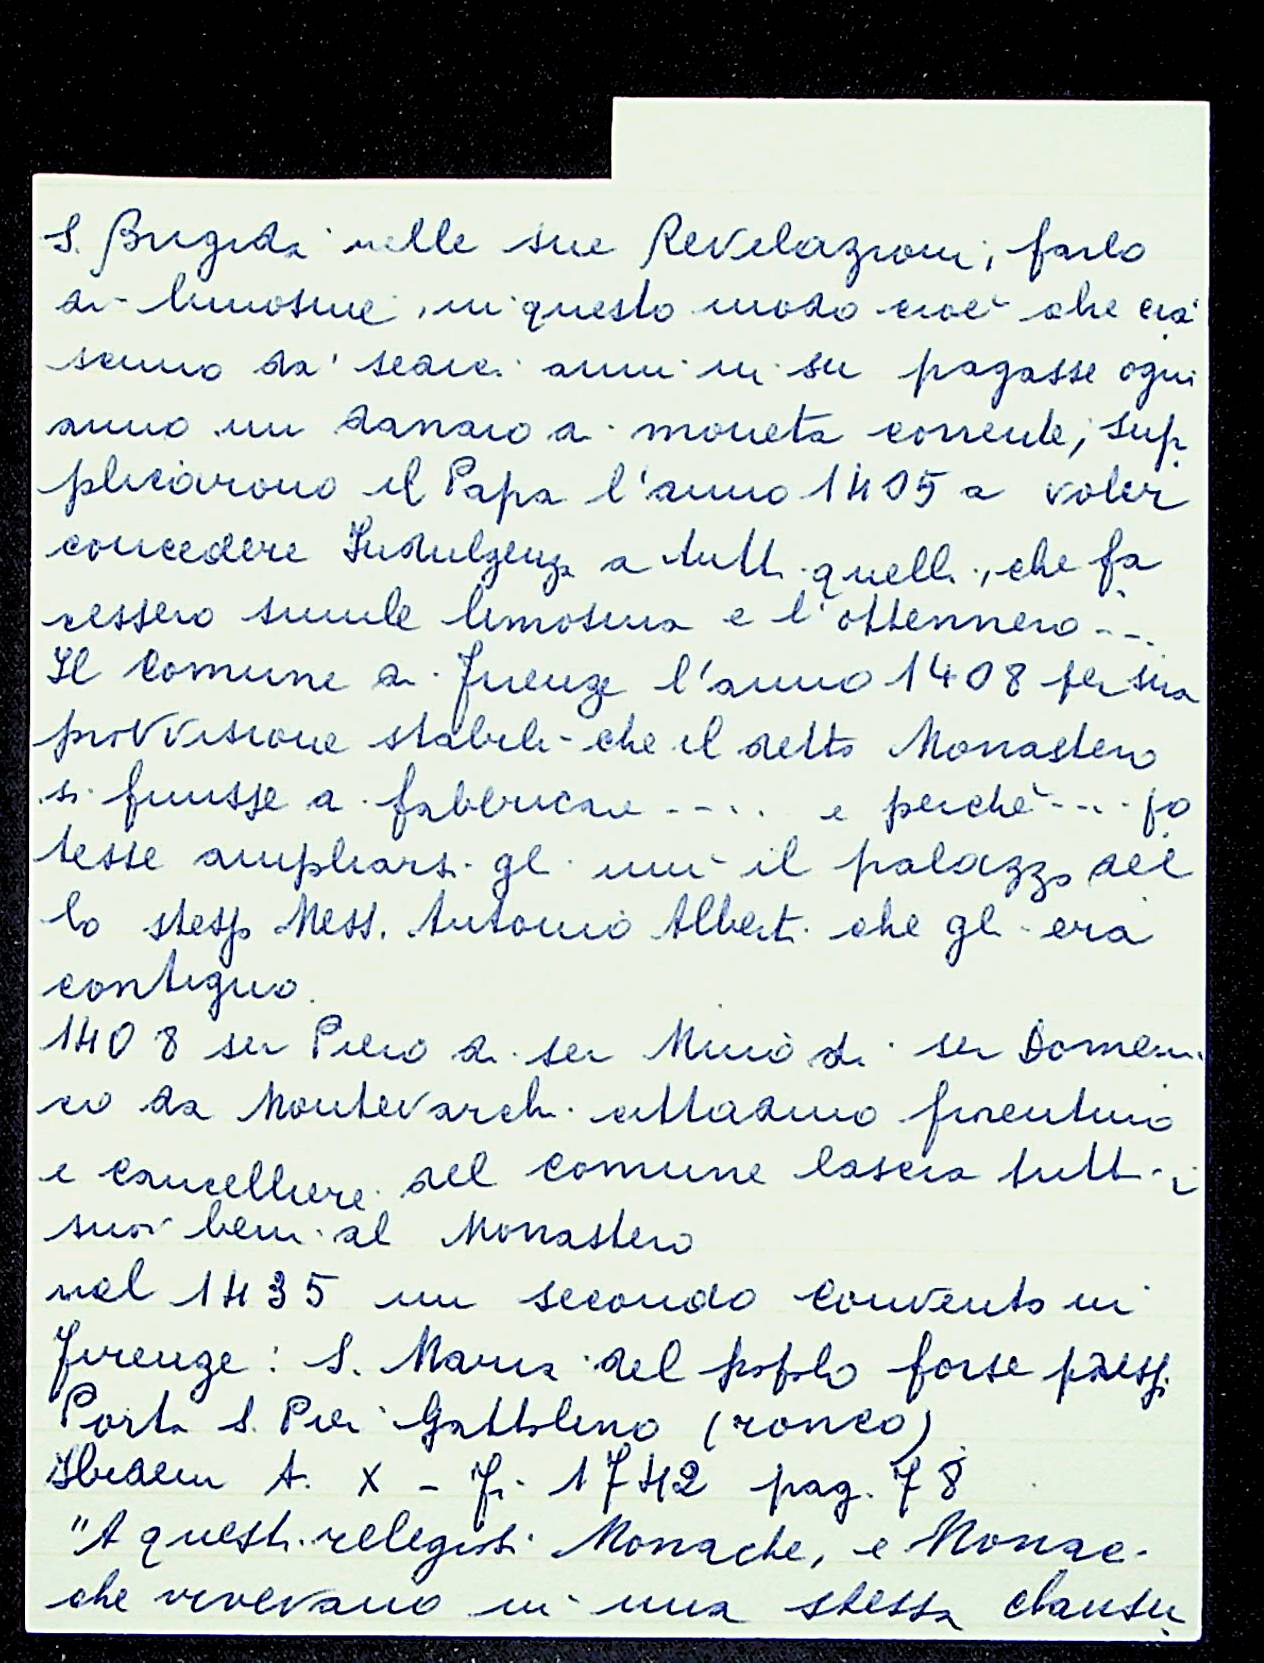 S. Brigida nelle sue Revelazioni, farlo
di limosine, in questo modo cioè che cia
scuno da' sedici anni in su pagasse ogni
anno un danaro di moneta corrente; sup
plicarono il Papa l'anno 1405 a voler
concedere Indulgenza a tutti quelli, che fa
cessero simile limosina e l'ottennero ---
Il Comune di Firenze l'anno 1408 per sua
provvisione stabilì che il detto Monastero
si finisse di fabbricare ---- e perchè --- po
tesse ampliarsi gli unì il palazzo del
lo stesso Mess. Antonio Alberti che gli era
contiguo.
1408 ser Piero di ser Mino di ser Domeni
co da Montevarchi cittadino fiorentino
e cancelliere del comune lascia tutti i
suoi beni al Monastero
nel 1435 un secondo convento in
Firenze: S. Maria del popolo forse presso
Porta S. Pier Gattolino (ronco)
Ibidem t. X - Fi. 1742 pag. 78
"A questi religiosi Monache, e Monac-
che vivevano in una stessa clausu